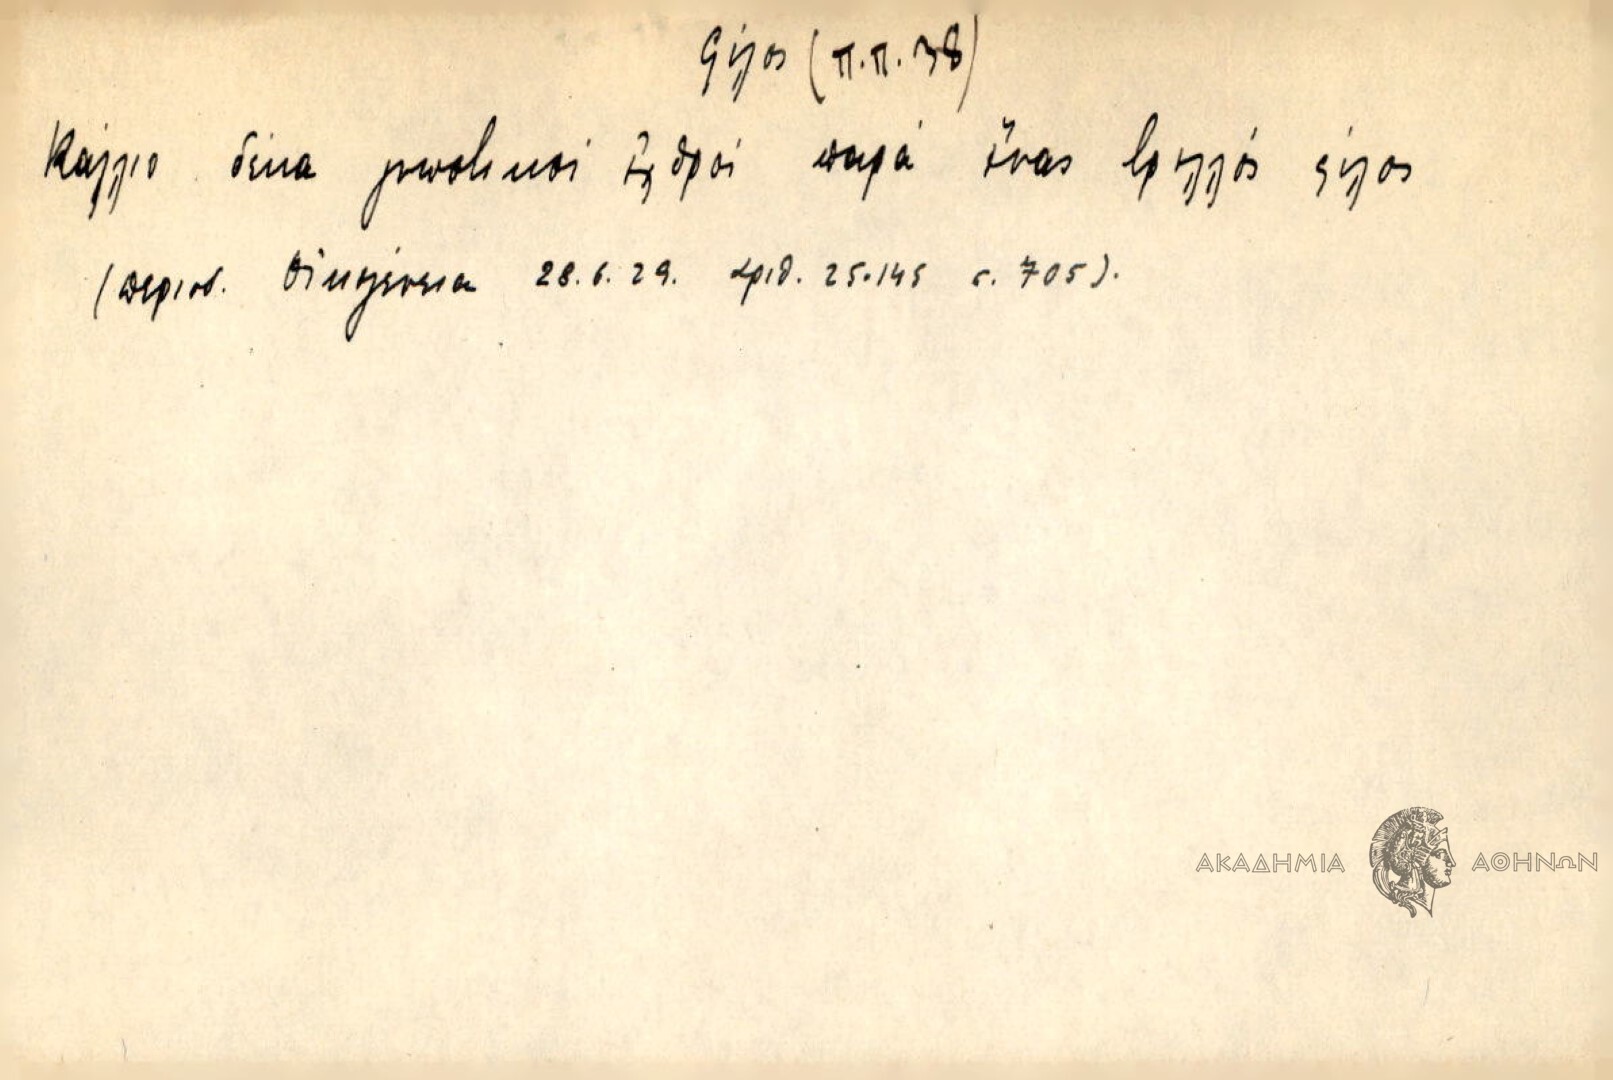 φίλος (π.π. 38)
Κάλλιο δέκα γνωστικοί ἐχθροί παρά ἕνας τρελλός φίλος
(περιοδ. Οἰκογένεια 28.6.29. ἀριθ. 25.145 σ. 705).
ΑΚΑΔΗΜΙΑ ΑΘΗΝΩΝ